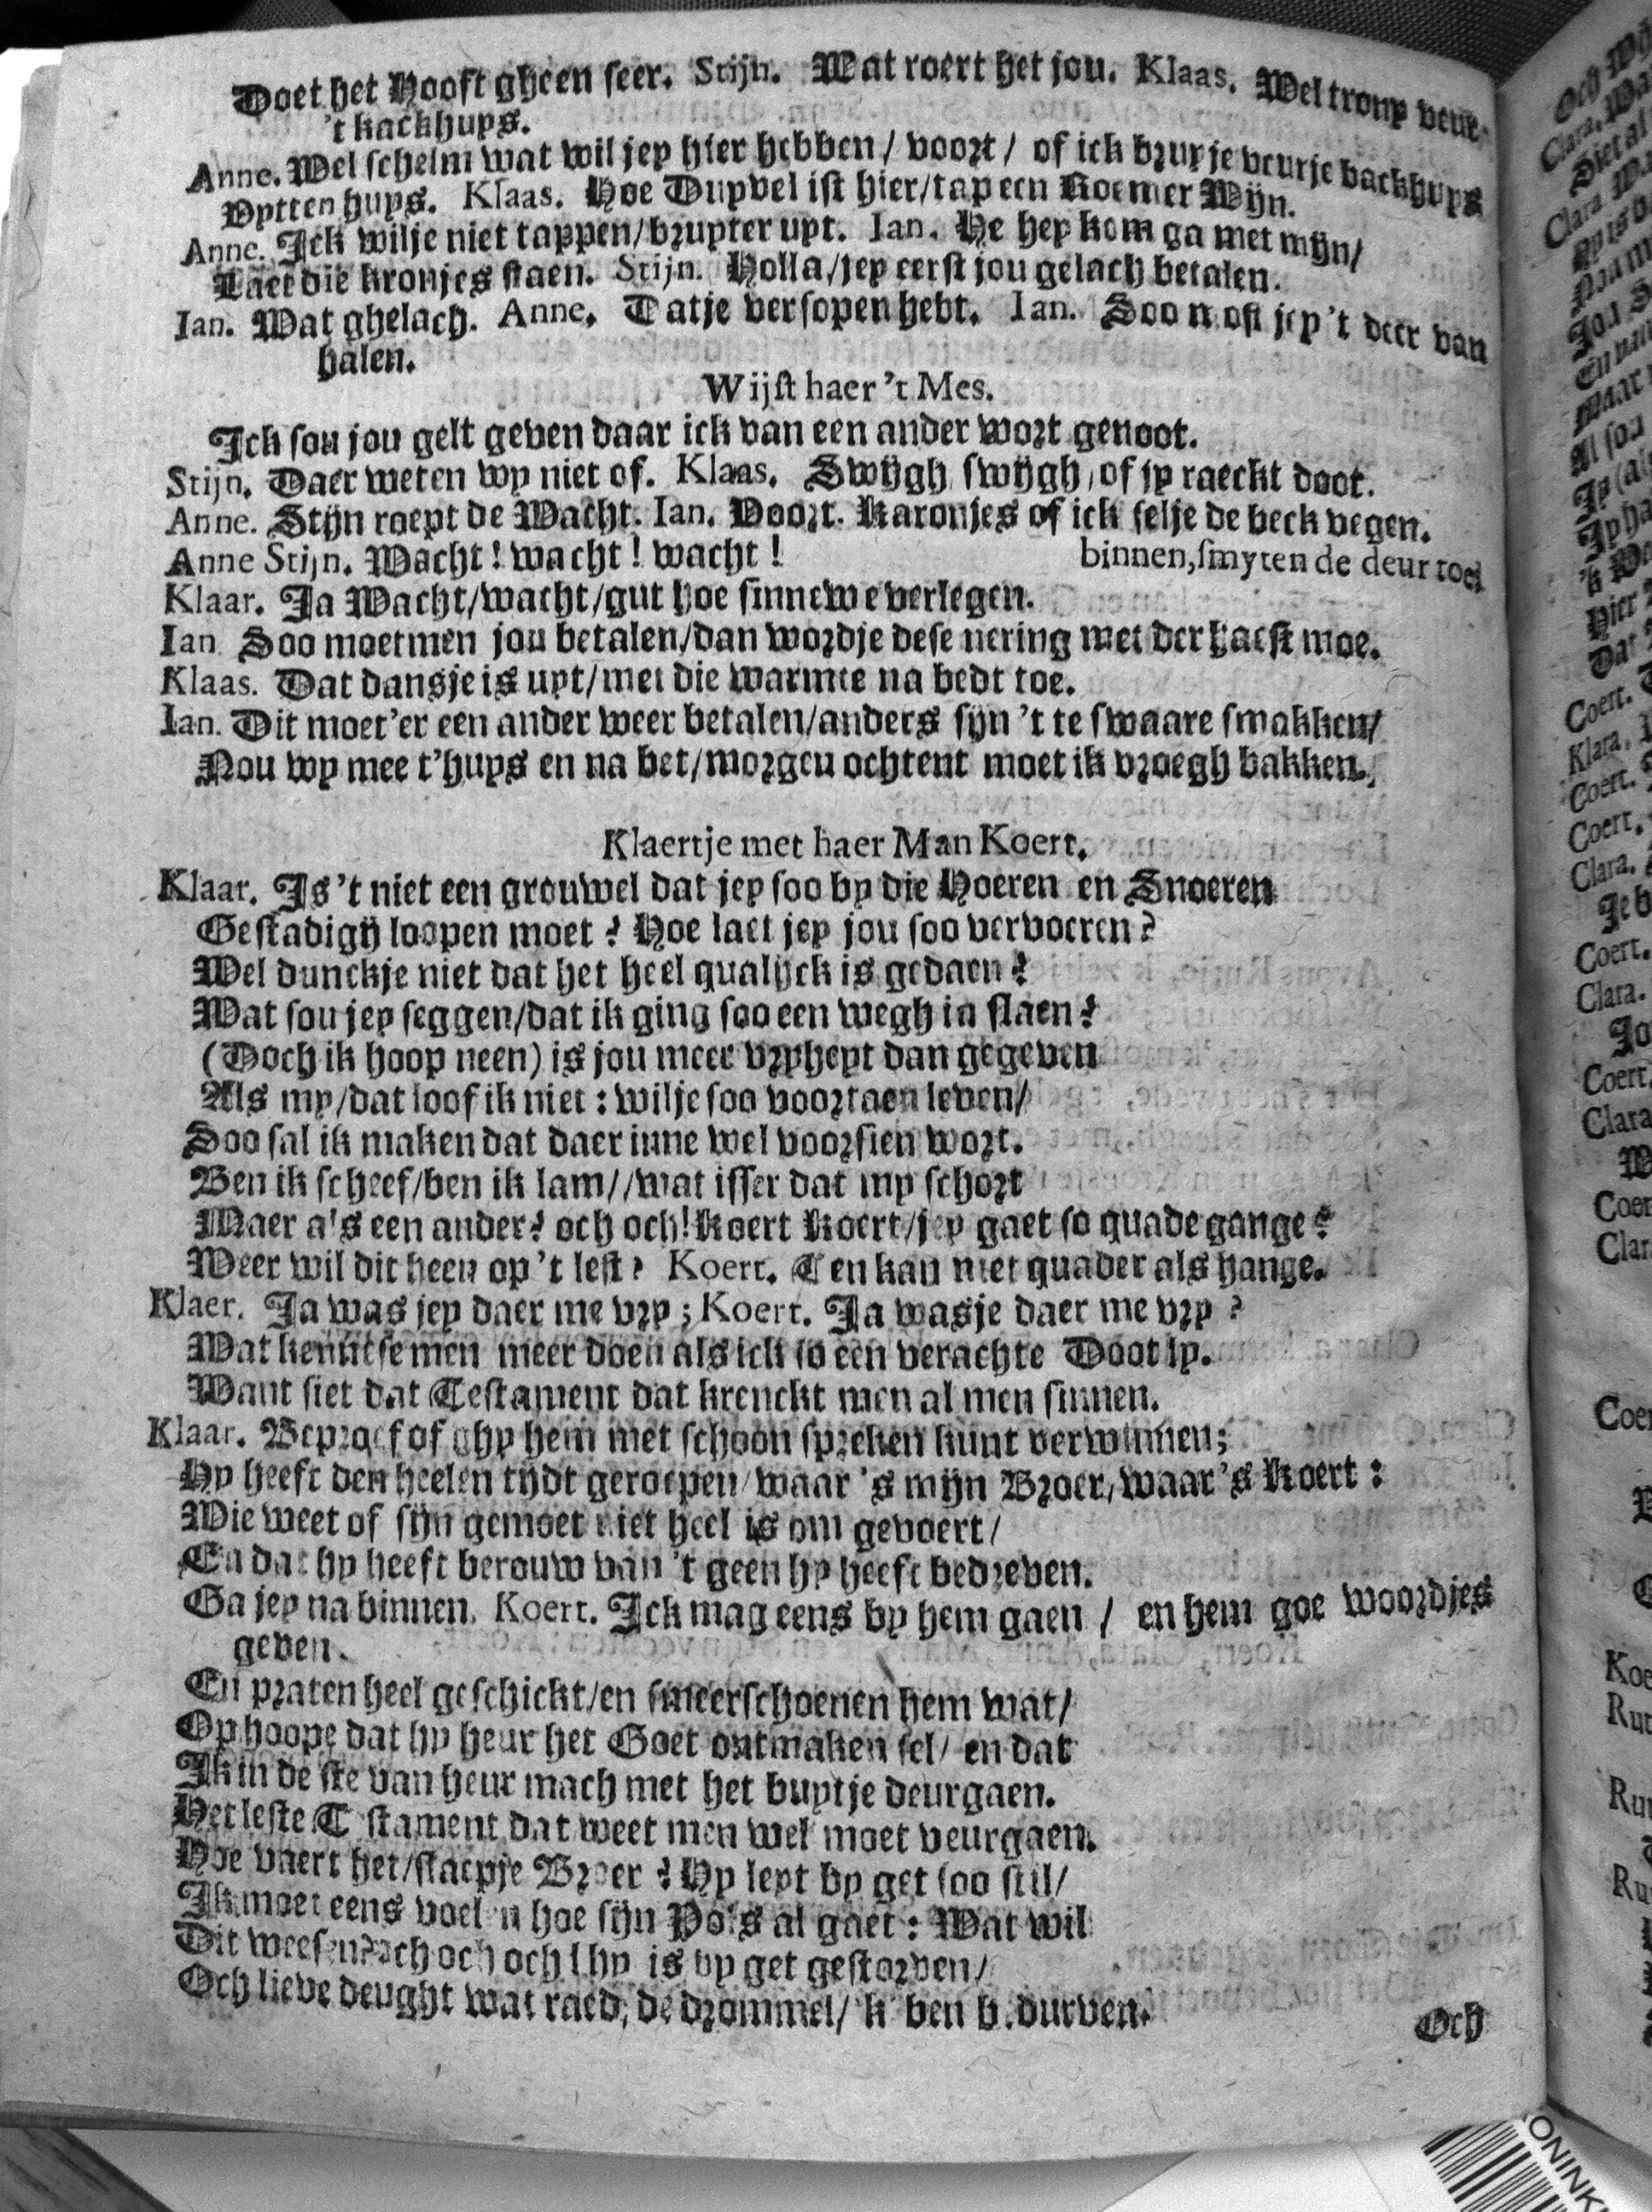 Doet het Hooft gheen seer. Stijn. Wat roert het jou. Klaas. Wel trony veur
't kackhuys.
Anne. Wel schelm wat wil jey hier hebben/ voort/ of ick bruy je veur je backhuys
Uytten huys. Klaas. Hoe Duyvel ist hier/tap een Roemer Wijn.
Anne. Ick wilje niet tappen/bruyter uyt. Ian. He hey kom ga met mijn/
Laet die kronjes staen. Stijn. Holla/jey eerst jou gelach betalen.
Ian. Wat ghelach. Anne. Tatje versopen hebt. Ian. Soo most jey 't deer van
halen.
Wijst haer 't Mes.
Ick sou jou gelt geven daar ick van een ander wort genoot.
Stijn. Daer weten wy niet of. Klaas. Swijgh swijgh, of jy raeckt doot.
Anne. Stijn roept de Wacht. Ian. Voort. Karonjes of ick selje de beck vegen.
Anne Stijn. Wacht! wacht! wacht! binnen, smyten de deur toe
Klaar. Ja Wacht/wacht/gut hoe sinnewe verlegen.
Ian Soo moetmen jou betalen/dan wordje dese nering met der haest moe.
Klaas. Dat dansje is uyt/met die warmte na bedt toe.
Ian. Dit moet'er een ander weer betalen/anders sijn 't te swaare smakken/
Nou wy mee t'huys en na bet/morgen ochtent moet ik vroegh bakken.
Klaertje met haer Man Koert.
Klaar. Is 't niet een grouwel dat jey soo by die Hoeren en Snoeren
Gestadigh loopen moet? Hoe laet jey jou soo vervoeren?
Wel dunckje niet dat het heel qualijck is gedaen?
Wat sou jey seggen/dat ik ging soo een wegh in slaen?
(Doch ik hoop neen) is jou meer vryheyt dan gegeven
Als my/dat loof ik niet: wilje soo voortaen leven/
Soo sal ik maken dat daer inne wel voorsien wort.
Ben ik scheef/ben ik lam//wat isser dat my schort
Maer als een ander? och och! Koert Koert/jey gaet so quade gange?
Weer wil dit heen op 't lest? Koert. Ten kan niet quader als hange.
Klaer. Ja was jey daer me vry; Koert. Ja wasje daer me vry?
Wat kenntse men meer doen als ick so een verachte Doot ly.
Want siet dat Testament dat krenckt men al men sinnen.
Klaar. Beproef of ghy hem met schoon spreken kunt verwinnen;
Hy heeft den heelen tijdt geroepen/waar 's mijn Broer, waar's Koert:
Wie weet of sijn gemoet niet heel is om gevoert/
En dat hy heeft berouw van 't geen hy heeft bedreven.
Ga jey na binnen. Koert. Ick mag eens by hem gaen / en hem goe woordjes
geven.
En praten heel geschickt/en smeerschoenen hem wat/
Op hoope dat hy heur het Goet ontmaken sel/ en dat
Ik in de ste van heur mach met het buytje deurgaen.
Het leste T stament dat weet men wel moet veurgaen.
Hoe vaert het/slaepje Broer? Hy leyt by get soo stil/
Ik moet eens voel n hoe sijn Pols al gaet: Wat wil
Dit weesen? och och och! hy is by get gestorven/
Och lieve deught wat raed, de drommel/ 'k ben b.durven.
Och